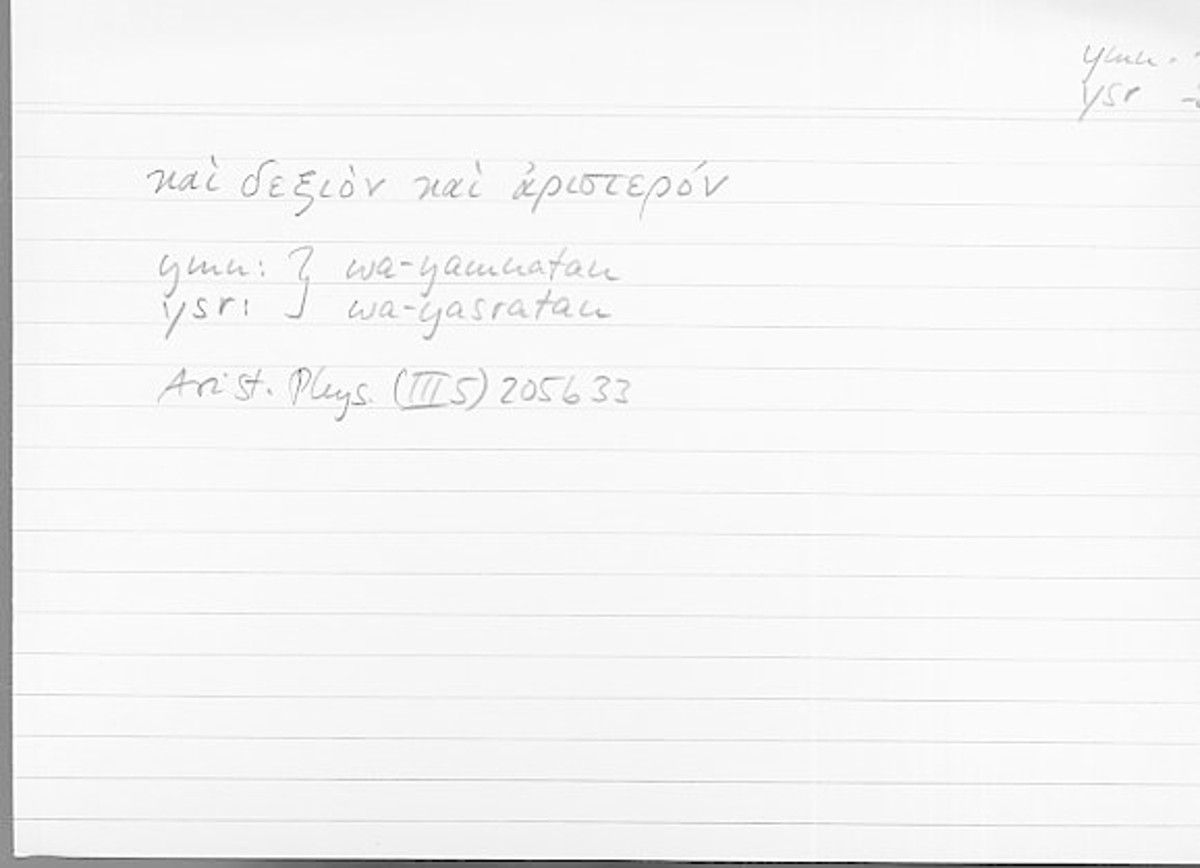 ymn.
ysr
καὶ δεξιὸν καὶ ἀριστερόν
ymn: } wa-yamnatan
ysr: wa-yasratan
Arist. Phys. (III 5) 205b33